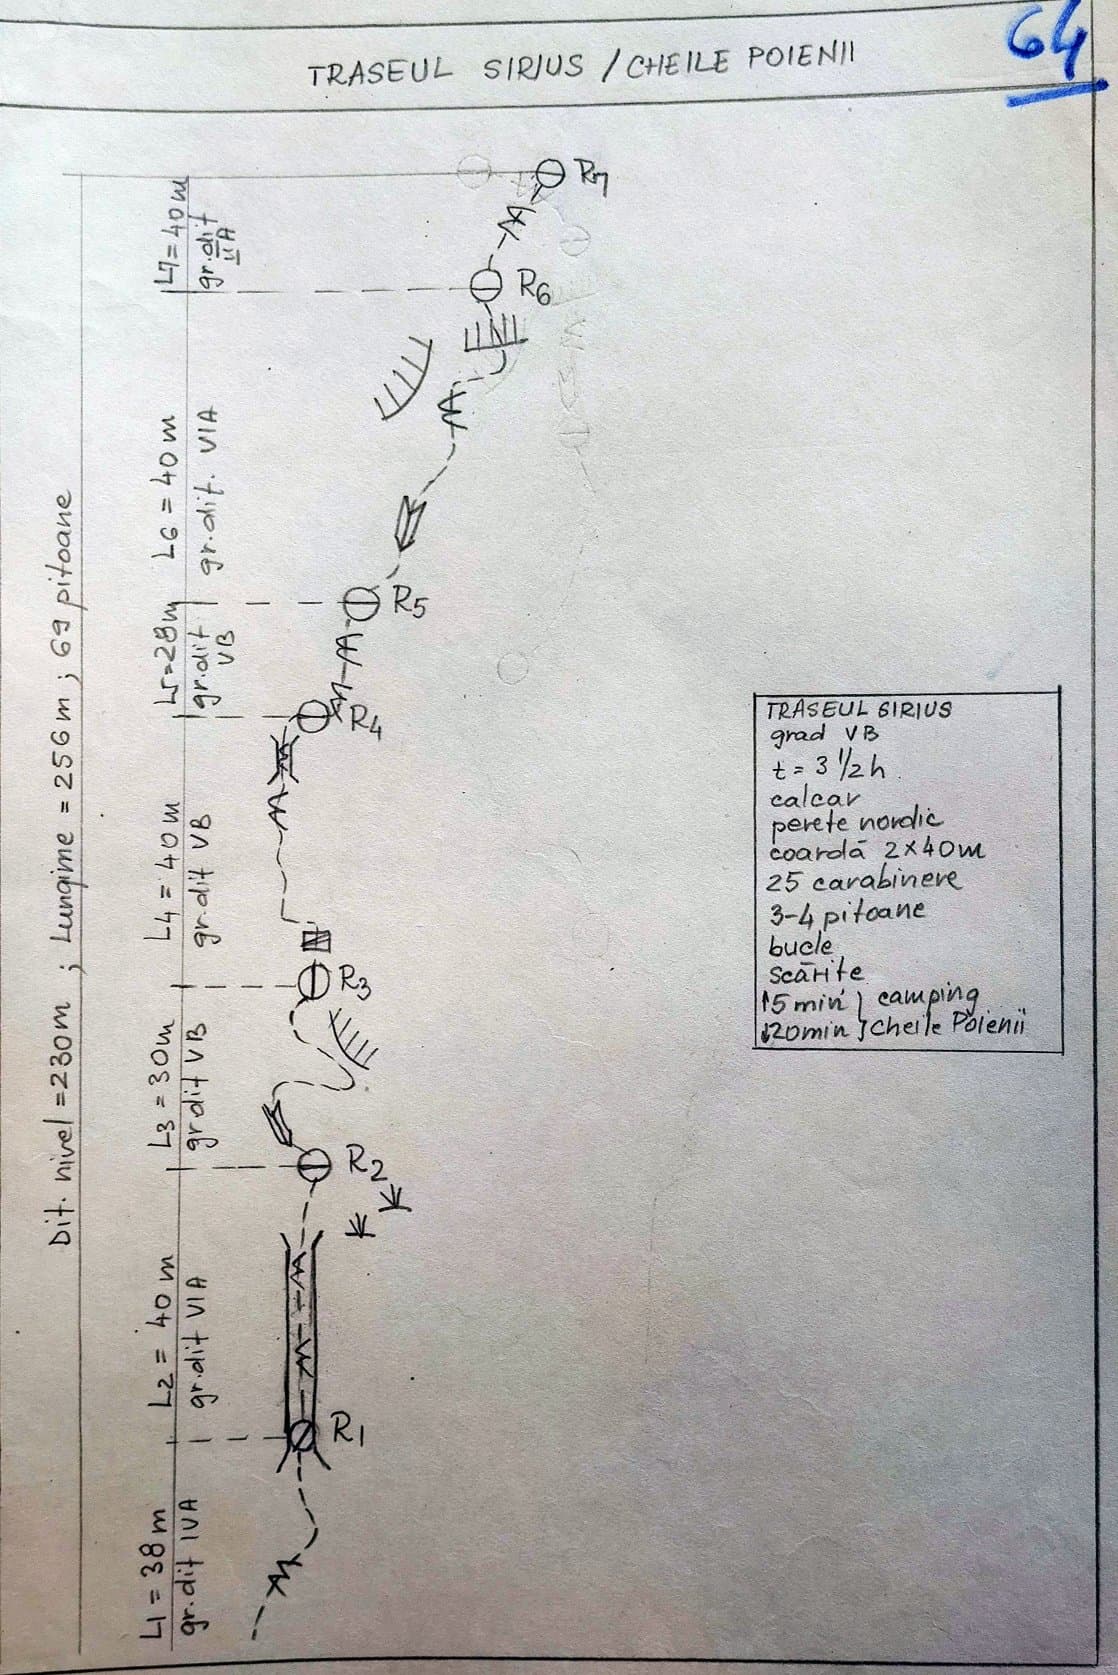 64
TRASEUL SIRIUS / CHEILE POIENII
Dif. nivel = 230m ; Lungime = 256m ; 69 pitoane
L7 = 40m
gr.dif
IIA
R7
R6
L6 = 40m
gr.dif. VIA
R5
L5 = 28m
gr.dif
VB
R4
L4 = 40m
gr.dif VB
R3
L3 = 30m
gr.dif VB
R2
L2 = 40m
gr.dif VIA
R1
L1 = 38m
gr.dif IVA
TRASEUL SIRIUS
grad VB
t = 3 1/2 h
calcar
perete nordic
coardă 2x40m
25 carabinere
3-4 pitoane
bucle
scărițe
↑5 min } camping
↓20min } Cheile Poienii